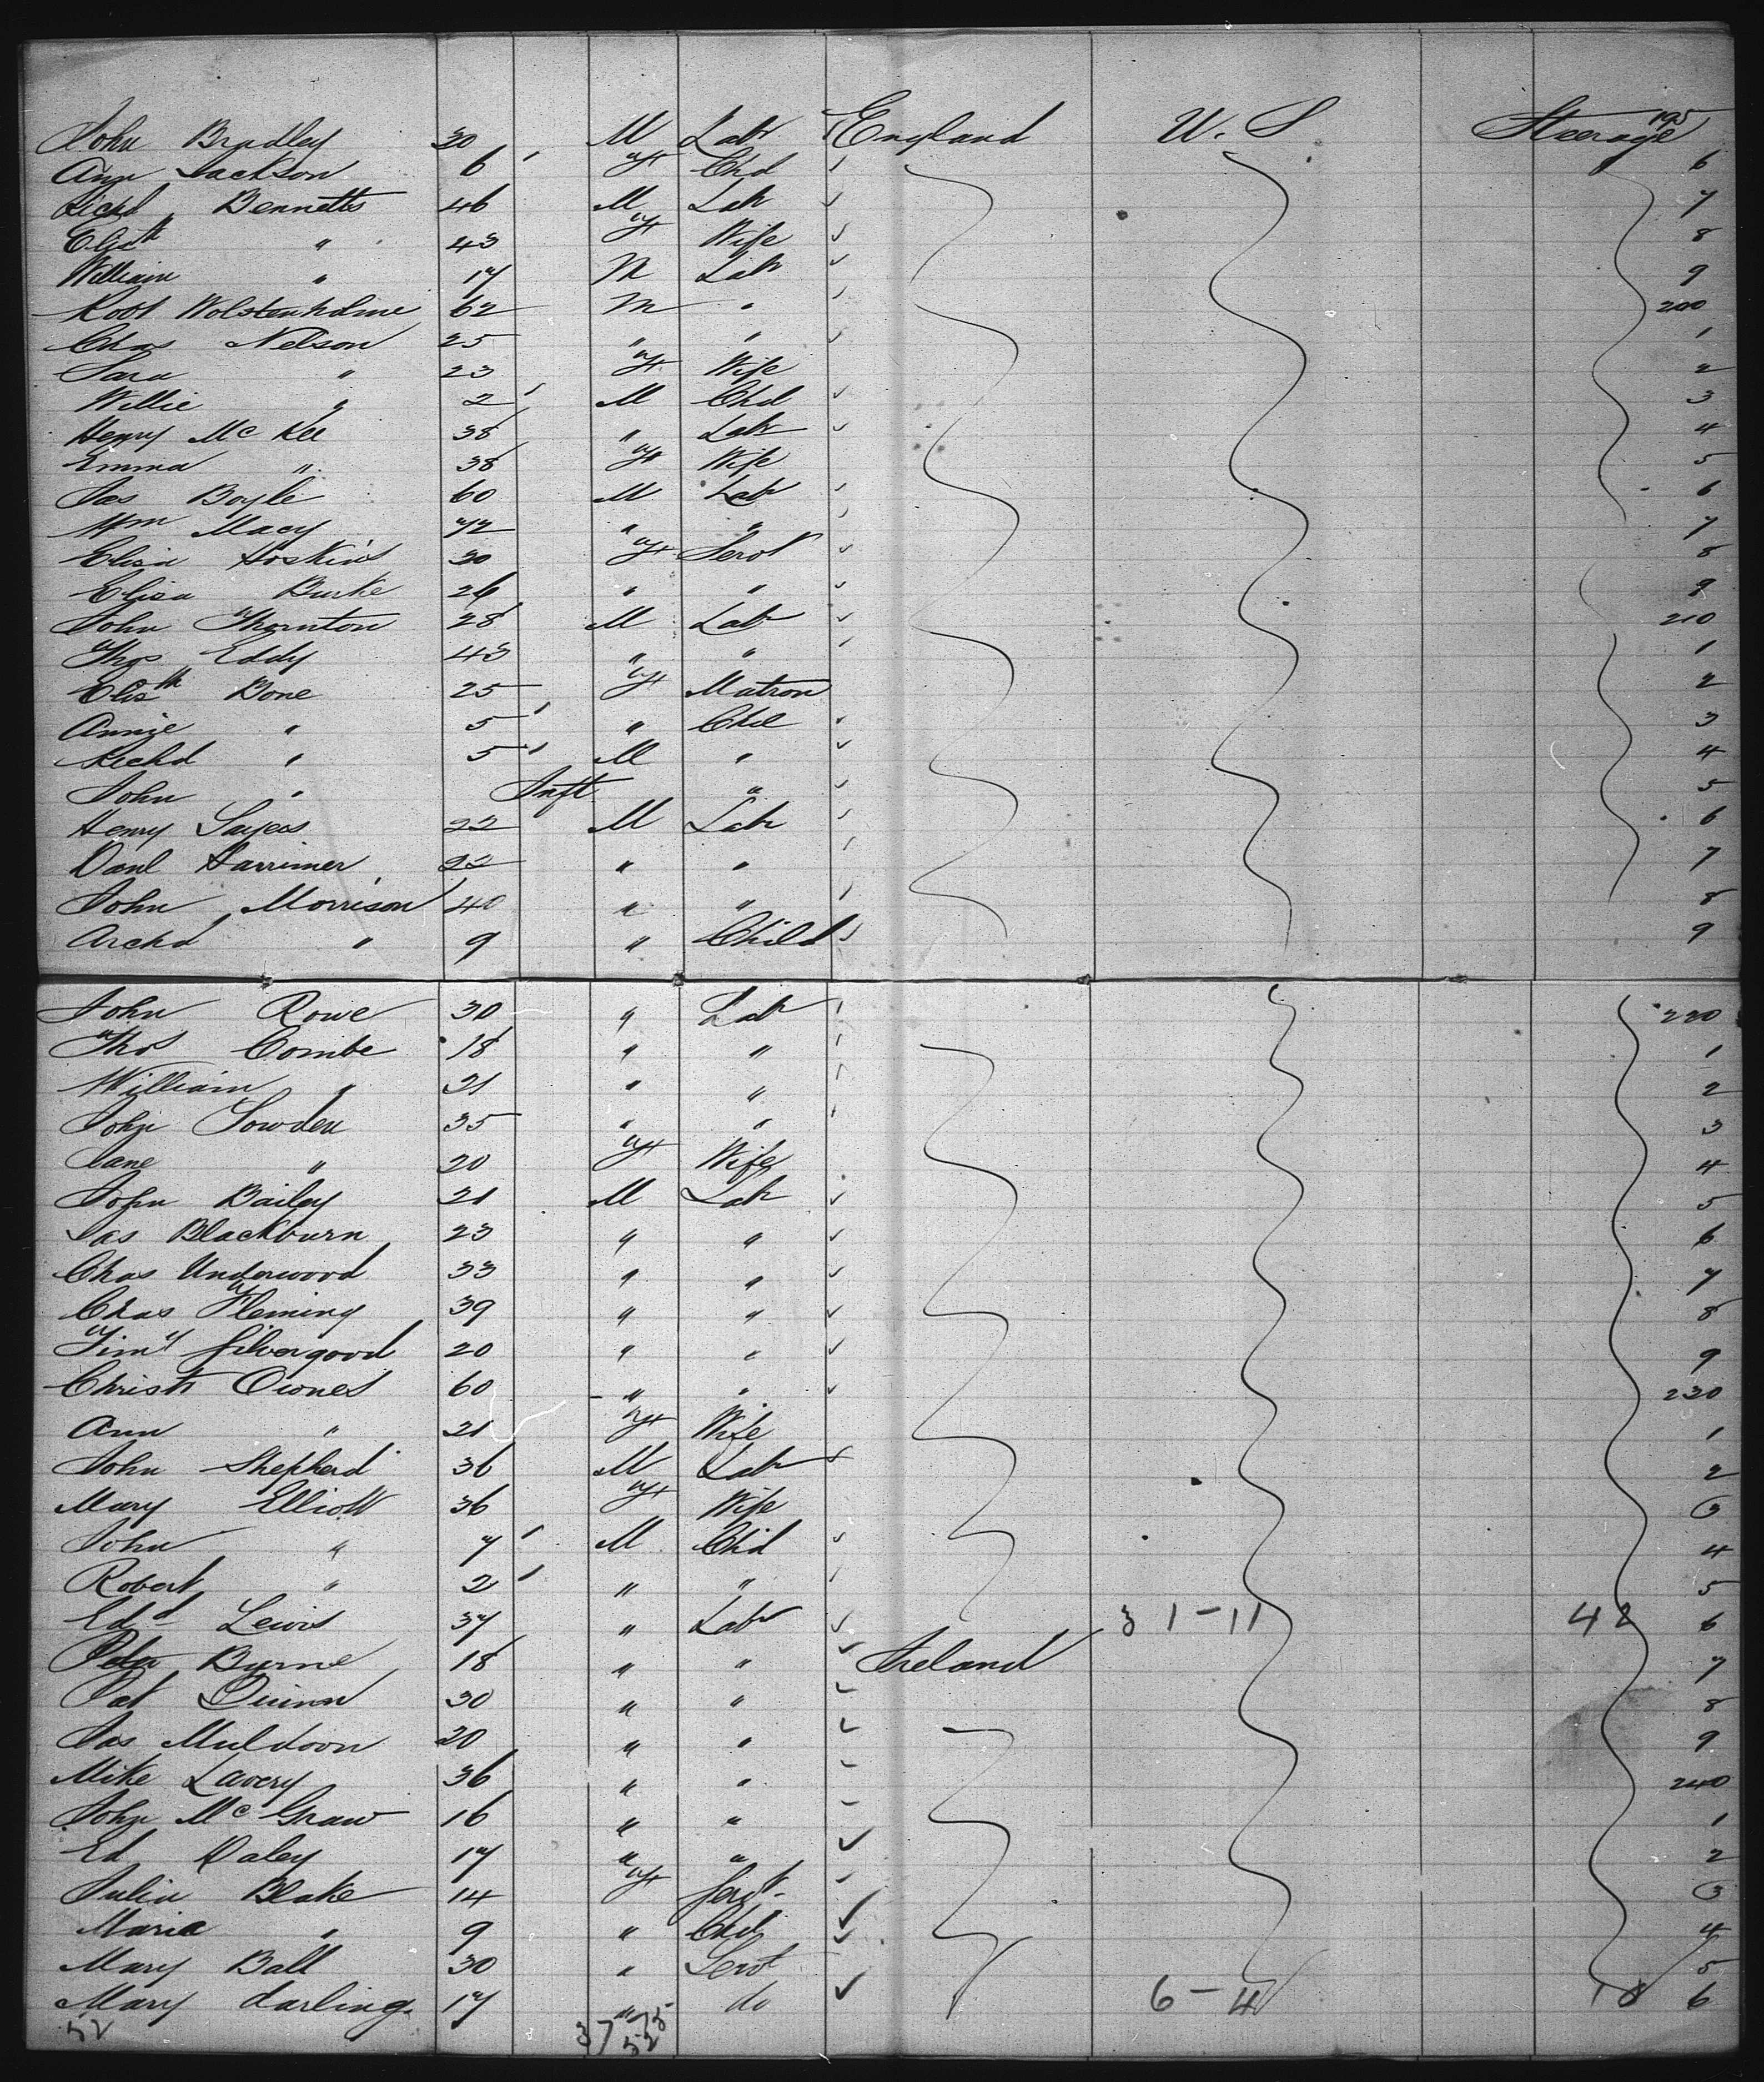 John Bradley 30 M Lab England U. S Steerage 195
Ann Jackson 6 F Chd 6
Richd Bennetts 46 M Lab 7
Elisth " 43 F Wife 8
William " 17 M Lab 9
Robt Wolstenholme 62 M " 200
Chas Nelson 25 " " 1
Sara " 23 F Wife 2
Willie " 2 M Chd 3
Henry Mc Kee 38 " Lab 4
Emma " 38 F Wife 5
Jas Boyle 60 M Lab 6
Wm Macy 72 " " 7
Elisa Hoskins 30 F Servt 8
Elisa Burke 26 " " 9
John Thornton 28 M Lab 210
Thos Eddy 43 " " 1
Elisth Bone 25 F Matron 2
Annie " 5 " Chd 3
Richd " 5 M " 4
John " Inft " 5
Henry Sayers 22 M Lab 6
Danl Harrimer 22 " " 7
John Morrison 40 " " 8
Archd " 9 " Child 9
John Rowe 30 " Lab 220
Thos Combe 18 " " 1
William " 21 " " 2
John Sowden 35 " " 3
Jane " 20 F Wife 4
John Bailey 21 M Lab 5
Jas Blackburn 23 " " 6
Chas Underwood 33 " " 7
Chas Fleming 39 " " 8
Timy Silvergood 20 " " 9
Christr Ownes 60 " " 230
Ann " 21 F Wife 1
John Shepherd 36 M Lab 2
Mary Elliott 36 F Wife 3
John " 7 M Chd 4
Robert " 2 " " 5
Edd Lewis 37 " Lab 31-11 42 6
Peter Burne 18 " " Ireland 7
Pat Quinn 30 " " 8
Jas Muldoon 20 " " 9
Mike Lavery 36 " " 240
John Mc Graw 16 " " 1
Ed Daley 17 " " 2
Julia Blake 14 F Servt 3
Maria " 9 " Chd 4
Mary Ball 30 " Servt 5
Mary Darling 17 " do 6-4 18 6
52 37